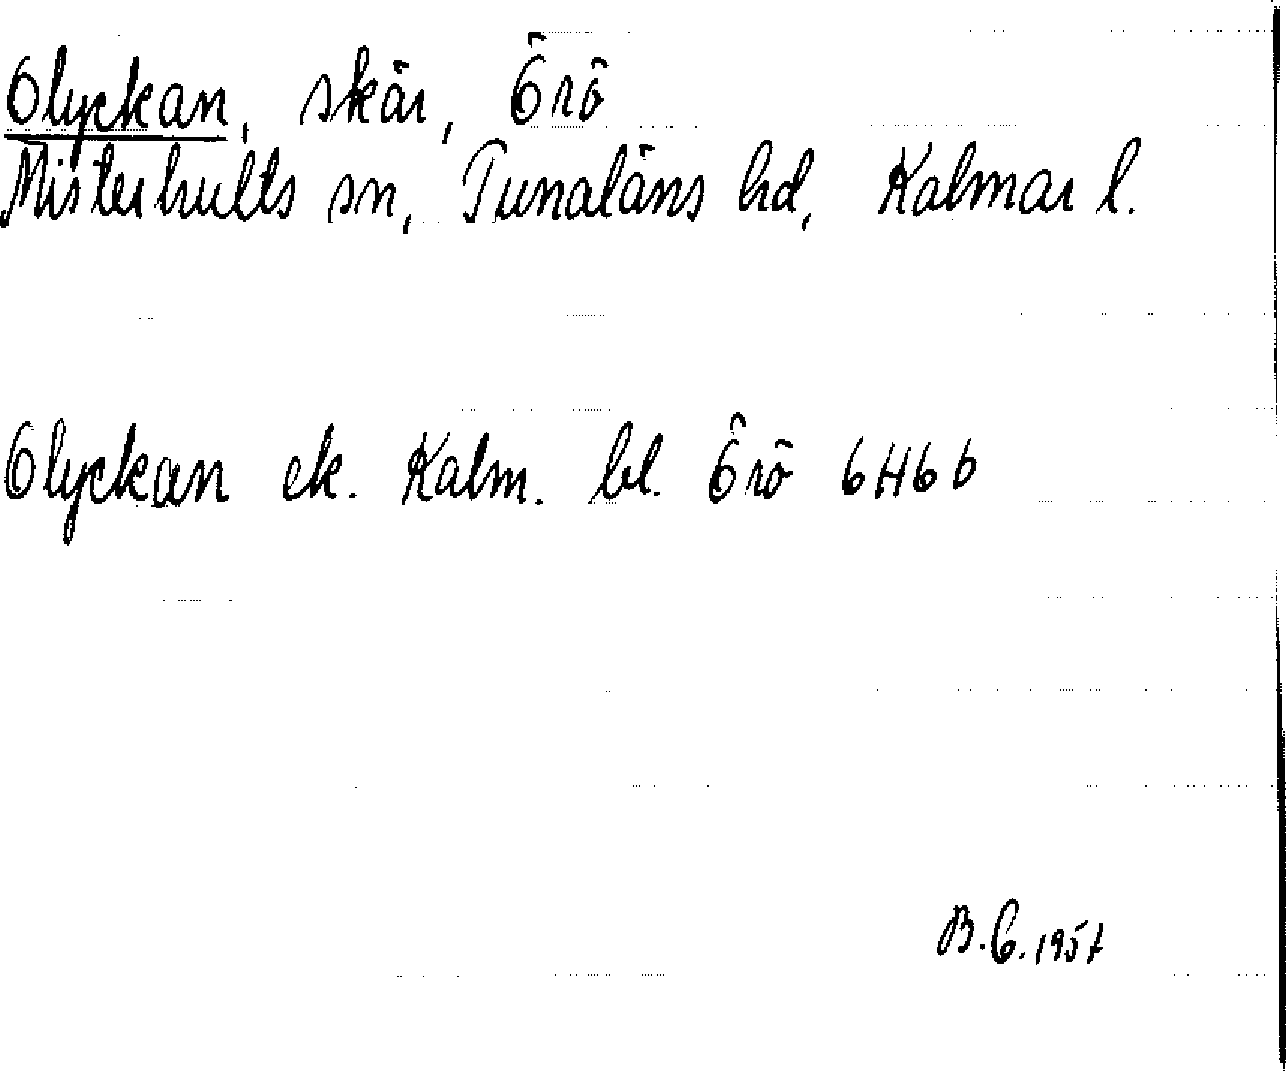 Olyckan, skär, Örö
Misterhults sn, Tunaläns hd, Kalmar l.
Olyckan ek. Kalm. bl. Örö 6H6b
B.G. 1957